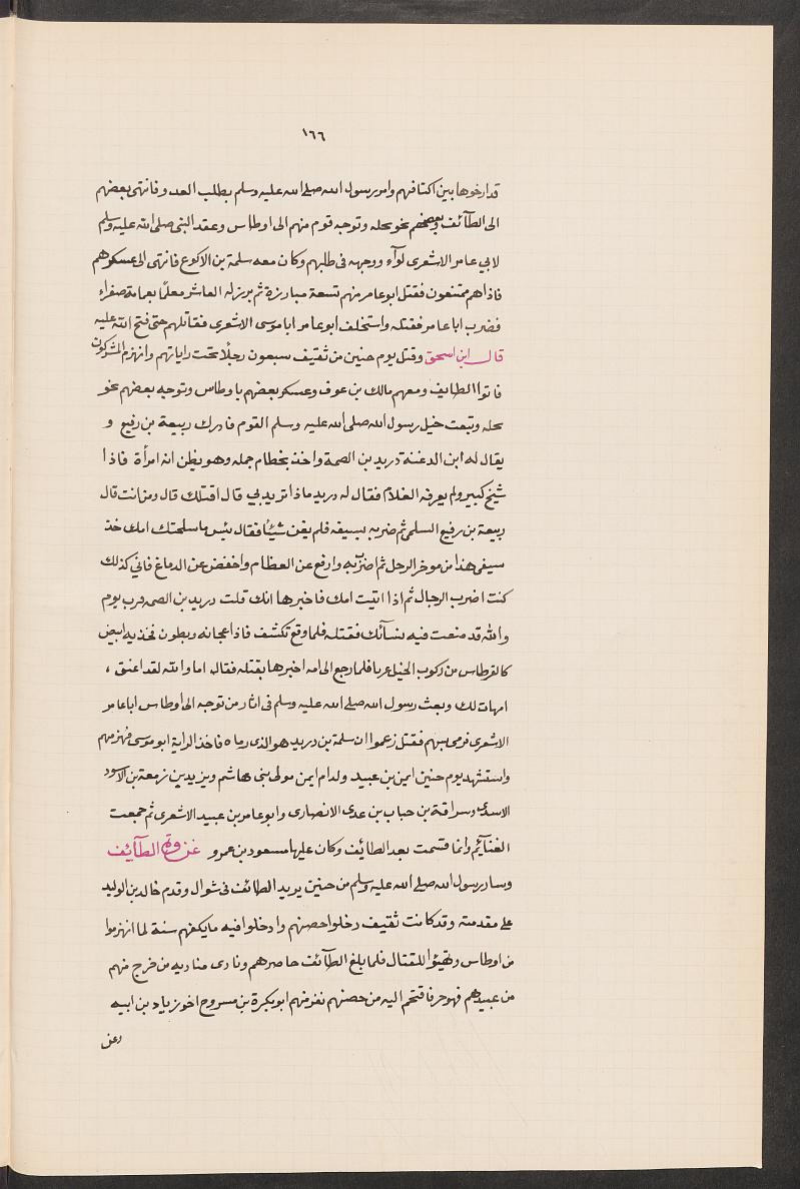 ١٦٦
قد ارخوها بين اكتافهم وامر رسول الله صلى الله عليه وسلم بطلب العدو فانتهى بعضهم
الى الطآئف وبعضهم نحو نخله وتوجه قوم منهم الى اوطاس وعقد النبى صلى الله عليه وسلم
لابي عامر الاشعرى لوآء ووجهه فى طلبهم وكان معه سلمة بن الاكوع فانتهى الى عسكرهم
فاذا هم ممتنعون فقتل ابو عامر منهم تسعة مبارزة ثم برز له العاشر معلمًا بعمامة صفراء
فضرب ابا عامر فقتله واستخلف ابو عامر ابا موسى الاشعرى فقاتلهم حتى فتح الله عليه
قال ابن اسحق وقتل يوم حنين من ثقيف سبعون رجلًا تحت راياتهم وانهزم المشركون
فاتوا الطايف ومعهم مالك بن عوف وعسكر بعضهم باوطاس وتوجه بعضهم نحو
نخله وتبعت خيل رسول الله صلى الله عليه وسلم القوم فادرك ربيعة بن رفيع و
يقال له ابن الدغنة دريد بن الصمة واخذ بخطام جمله وهو يظن انه امرأة فاذا
شيخ كبير ولم يعرفه الغلام فقال له دريد ماذا تريد بي قال اقتلك قال ومن انت قال
ربيعة بن رفيع السلمى ثم ضربه بسيفه فلم يغن شيئًا فقال بئس ما سلحتك امك خذ
سيفى هذا من موخر الرحل ثم اضربه وارفع عن العظام واخفض عن الدماغ فاني كذلك
كنت اضرب الرجال ثم اذا اتيت امك فاخبرها انك قلت دريد بن الصمه فرب يوم
والله قد منعت فيه نسآئك فقتله فلما وقع تكشف فاذا عجانه وبطون فخذيه ابيض
كالقرطاس من ركوب الخيل عريا فلما رجع الى امه اخبرها بقتله فقال اما والله لقد اعتق ،
امهات لك وبعث رسول الله صلى الله عليه وسلم فى اثار من توجه الى اوطاس ابا عامر
الاشعرى فرمى بسهم فقتل زعموا ان سلمة بن دريد هو الذى رماه فاخذ الراية ابو موسى فهزمهم
واستشهد يوم حنين ايمن بن عبيد ولد ام ايمن مولى بنى هاشم ويزيد بن زمعة بن الاسود
الاسدى وسراقة بن حباب بن عدى الانصارى وابو عامر بن عبيد الاشعرى ثم جمعت
الغنآئم وانما قسمت بعد الطائف وكان عليها مسعود بن عمرو غزوة الطآئف
وسار رسول الله صلى الله عليه وسلم من حنين يريد الطائف فى شوال وقدم خالد بن الوليد
على مقدمته وقد كانت ثقيف دخلوا حصنهم وادخلوا فيه ما يكفهم سنة لما انهزموا
من اوطاس وتهيؤا للقتال فلما بلغ الطآئف حاصرهم ونادى مناديه من خرج منهم
من عبيدهم فهو حر فاقتحم اليه من حصنهم نفر منهم ابو بكرة بن مسروح اخو زياد بن ابيه
وعن